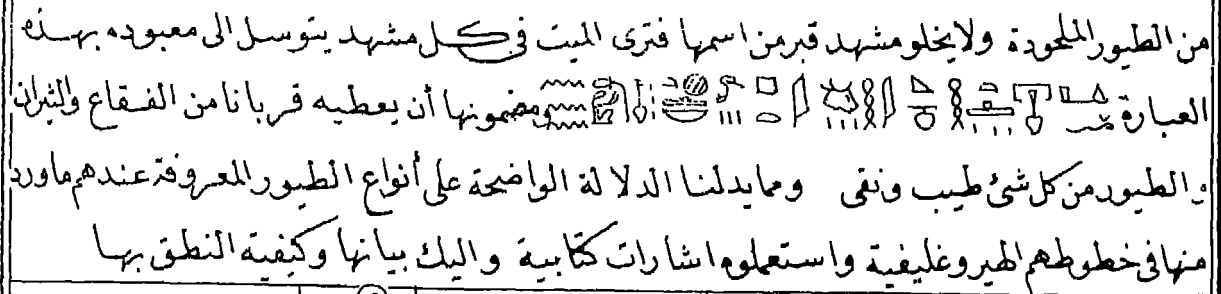 من الطيور الملحودة ولا يخلو مشهد قبر من اسمها فترى الميت في كل مشهد يتوسل الى معبوده بهذه
العبارة ومضمونها أن يعطيه قربانا من الفقاع والثيران
والطيور من كل شئ طيب ونقى ومما يدلنا الدلالة الواضحة على أنواع الطيور المعروفة عندهم ماورد
منها في خطوطهم الهيروغليفية واستعملوه اشارات كتابية واليك بيانها وكيفية النطق بها